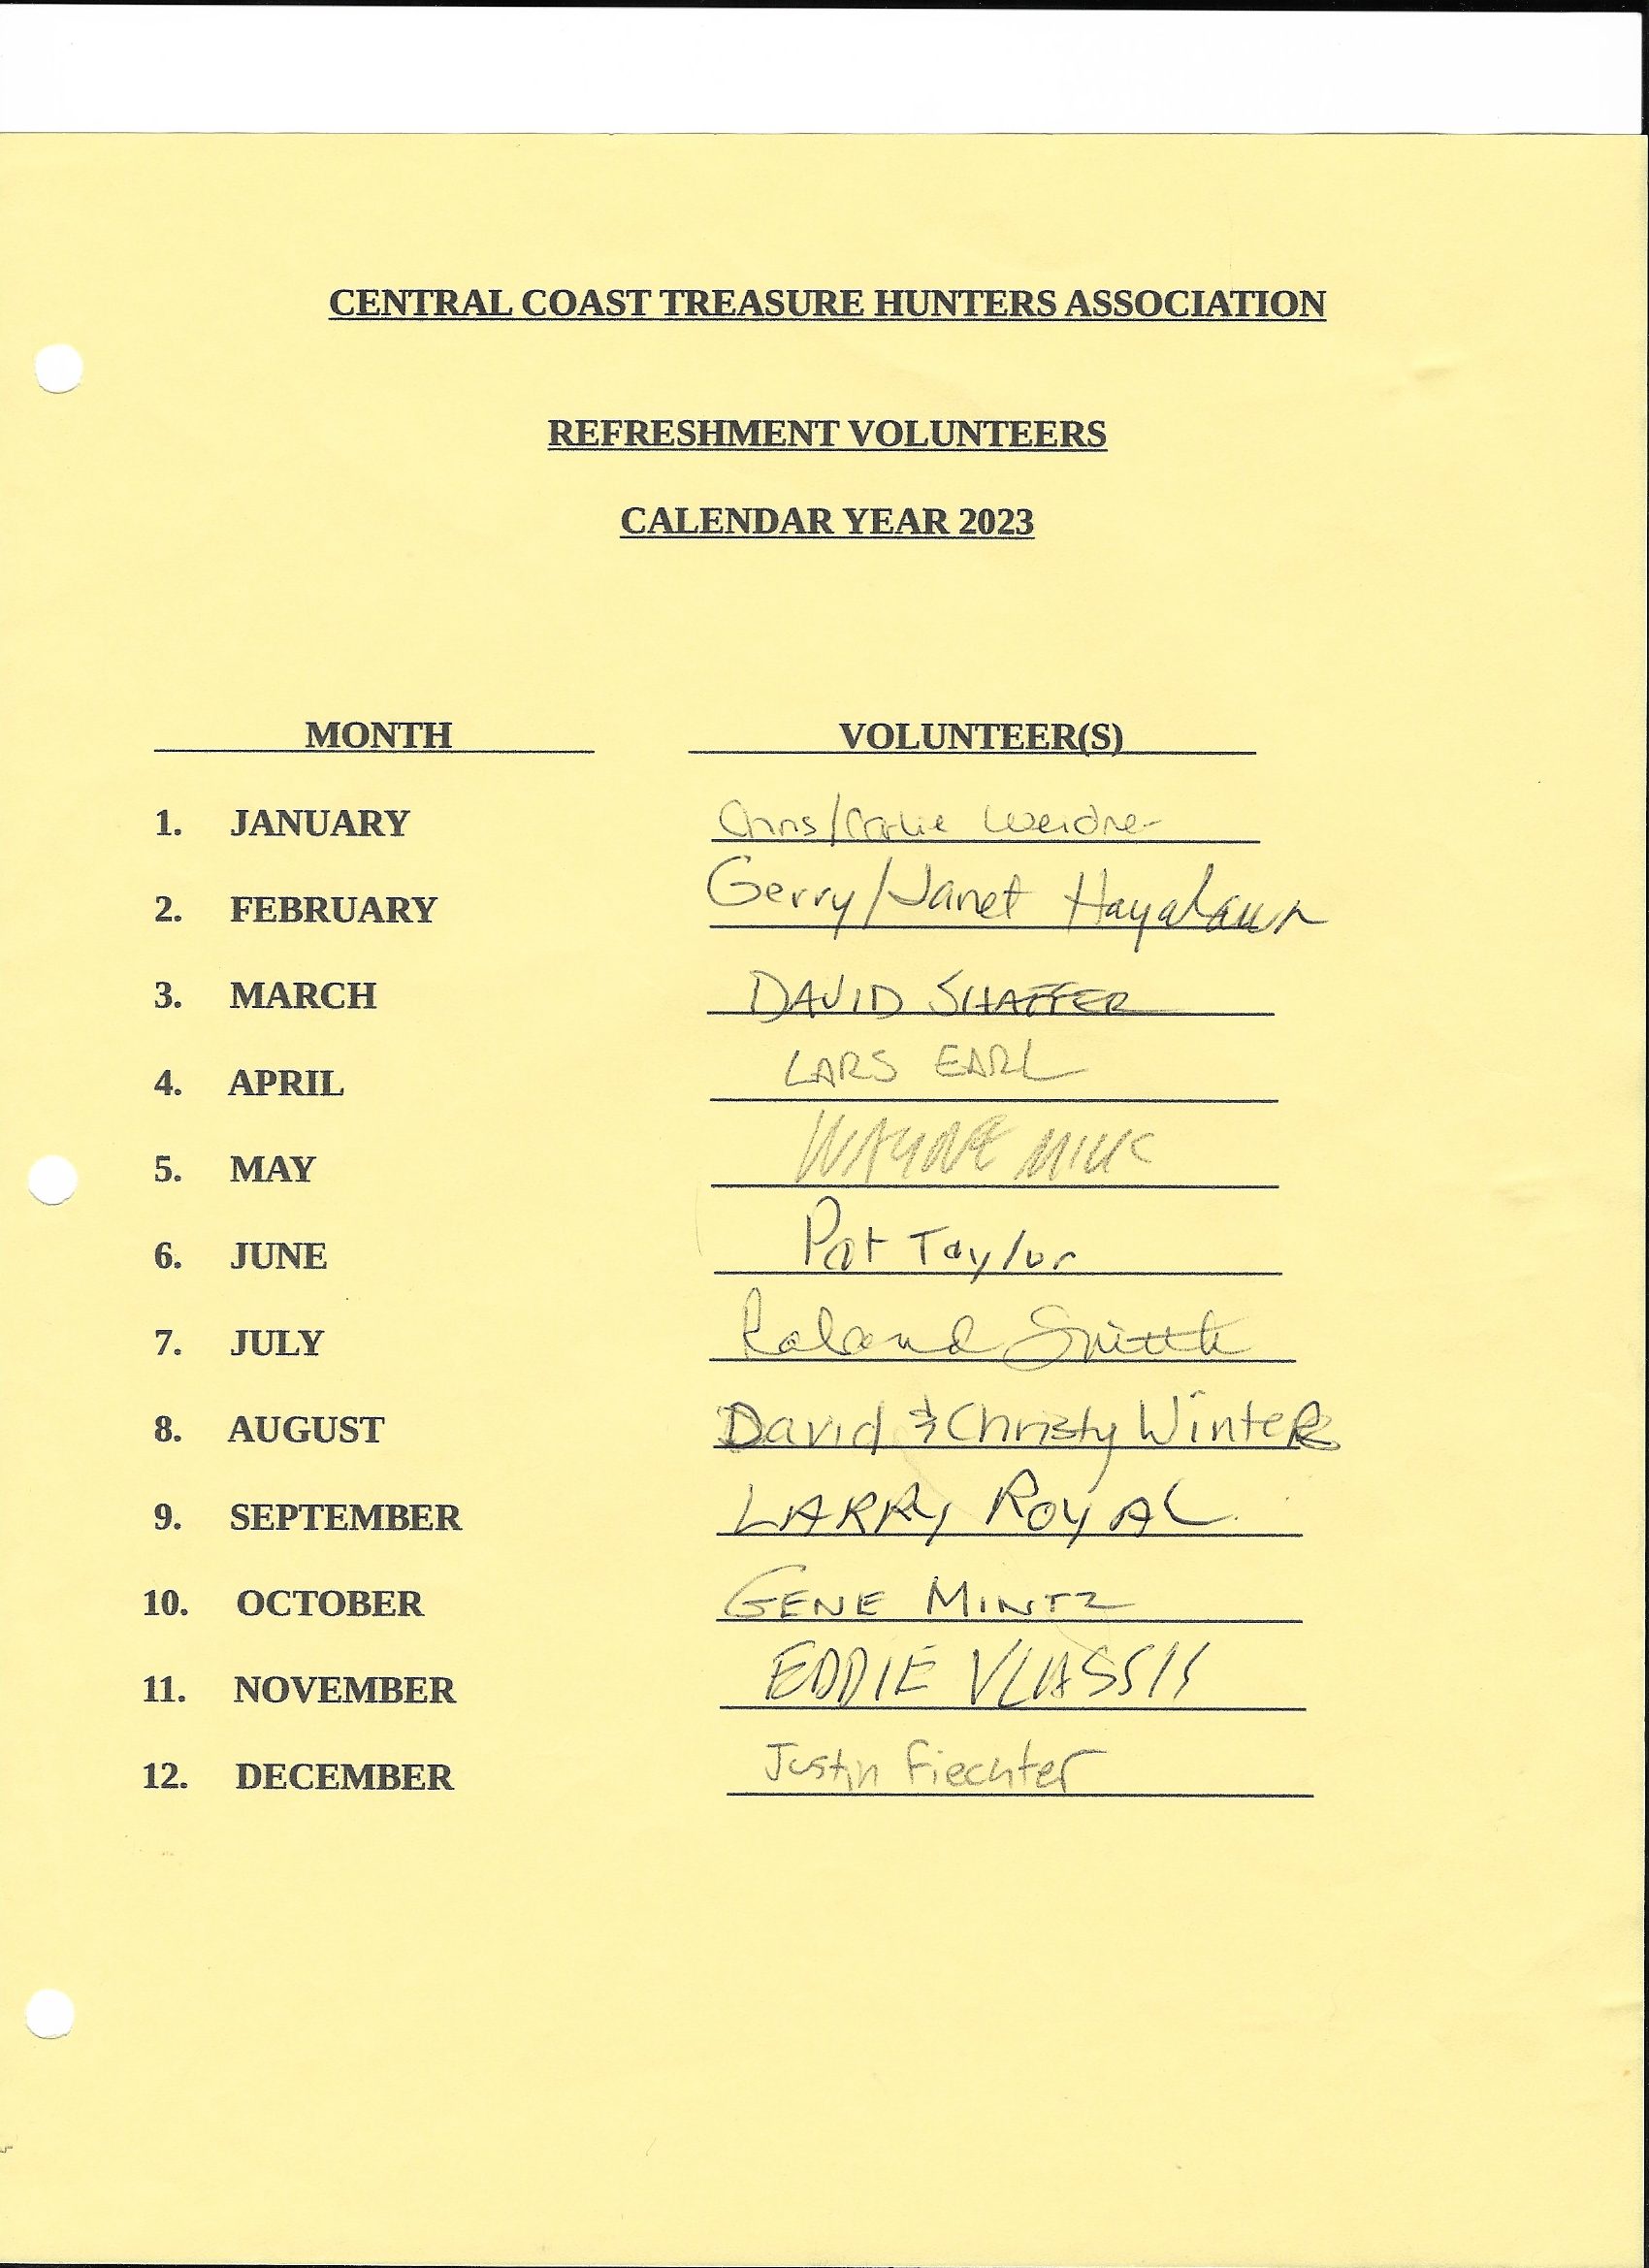 CENTRAL COAST TREASURE HUNTERS ASSOCIATION
REFRESHMENT VOLUNTEERS
CALENDAR YEAR 2023
MONTH VOLUNTEER(S)
1. JANUARY Chris/ Weidner
2. FEBRUARY Gerry/Janet
3. MARCH DAVID SHAFFER
4. APRIL LARS EARL
5. MAY WAYNE
6. JUNE Pat Taylor
7. JULY Roland Smith
8. AUGUST David & Christy Winters
9. SEPTEMBER LARRY ROYAL
10. OCTOBER GENE MINTZ
11. NOVEMBER EDDIE VLASSIS
12. DECEMBER Justin Fiechter